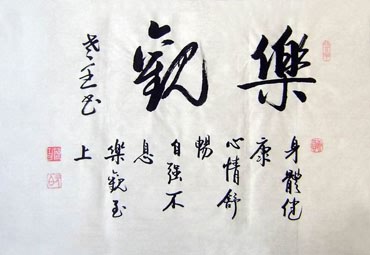 樂觀
身體健
康
心情舒
暢
自强不
息
樂觀至
上